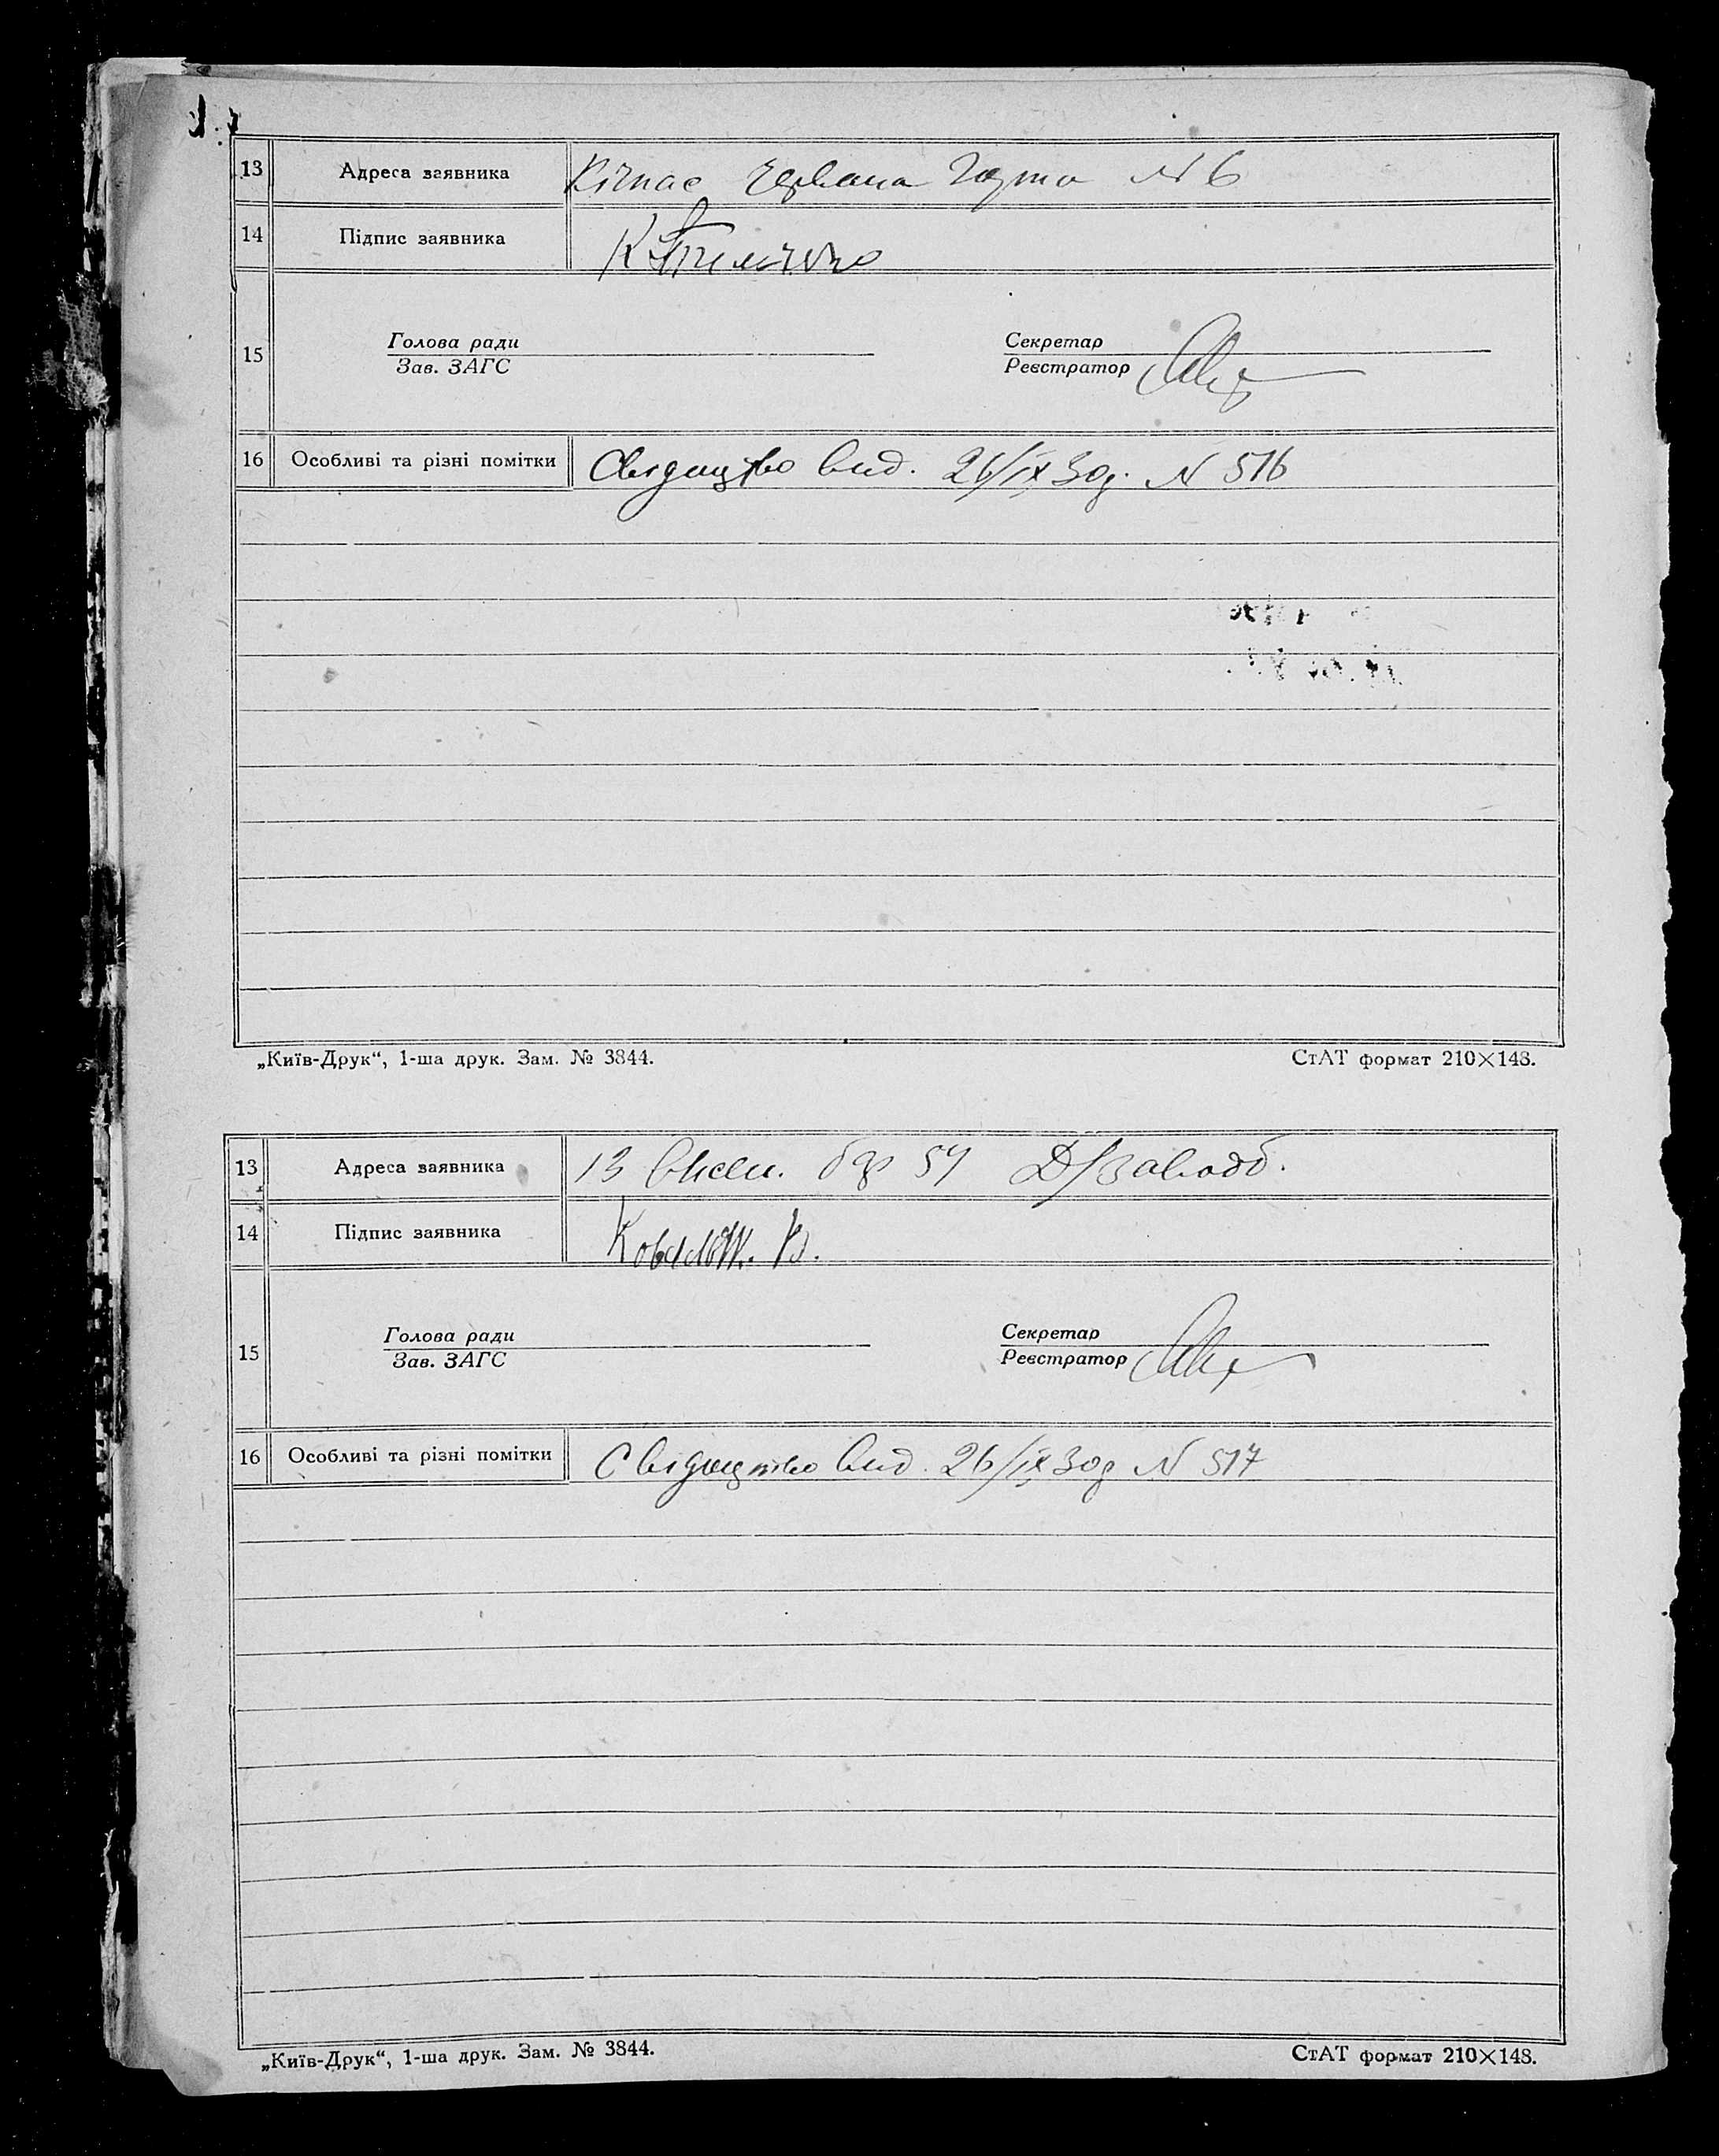 13 Адреса заявника Кічкас Червона Гоута № 6
14 Підпис заявника
Голова ради Секретар
15
Зав. ЗАГС Реєстратор
16 Особливі та різні помітки Свідоцтво вид. 26/ІХ 30 р. № 516
„Київ-Друк“, 1-ша друк. Зам. № 3844. СтАТ формат 210×148.
13 Адреса заявника 13 54
14 Підпис заявника В.
Голова ради Секретар
15
Зав. ЗАГС Реєстратор
16 Особливі та різні помітки Свідоцтво вид. 26/ІХ 30 р № 517
„Київ-Друк“, 1-ша друк. Зам. № 3844. СтАТ формат 210×148.